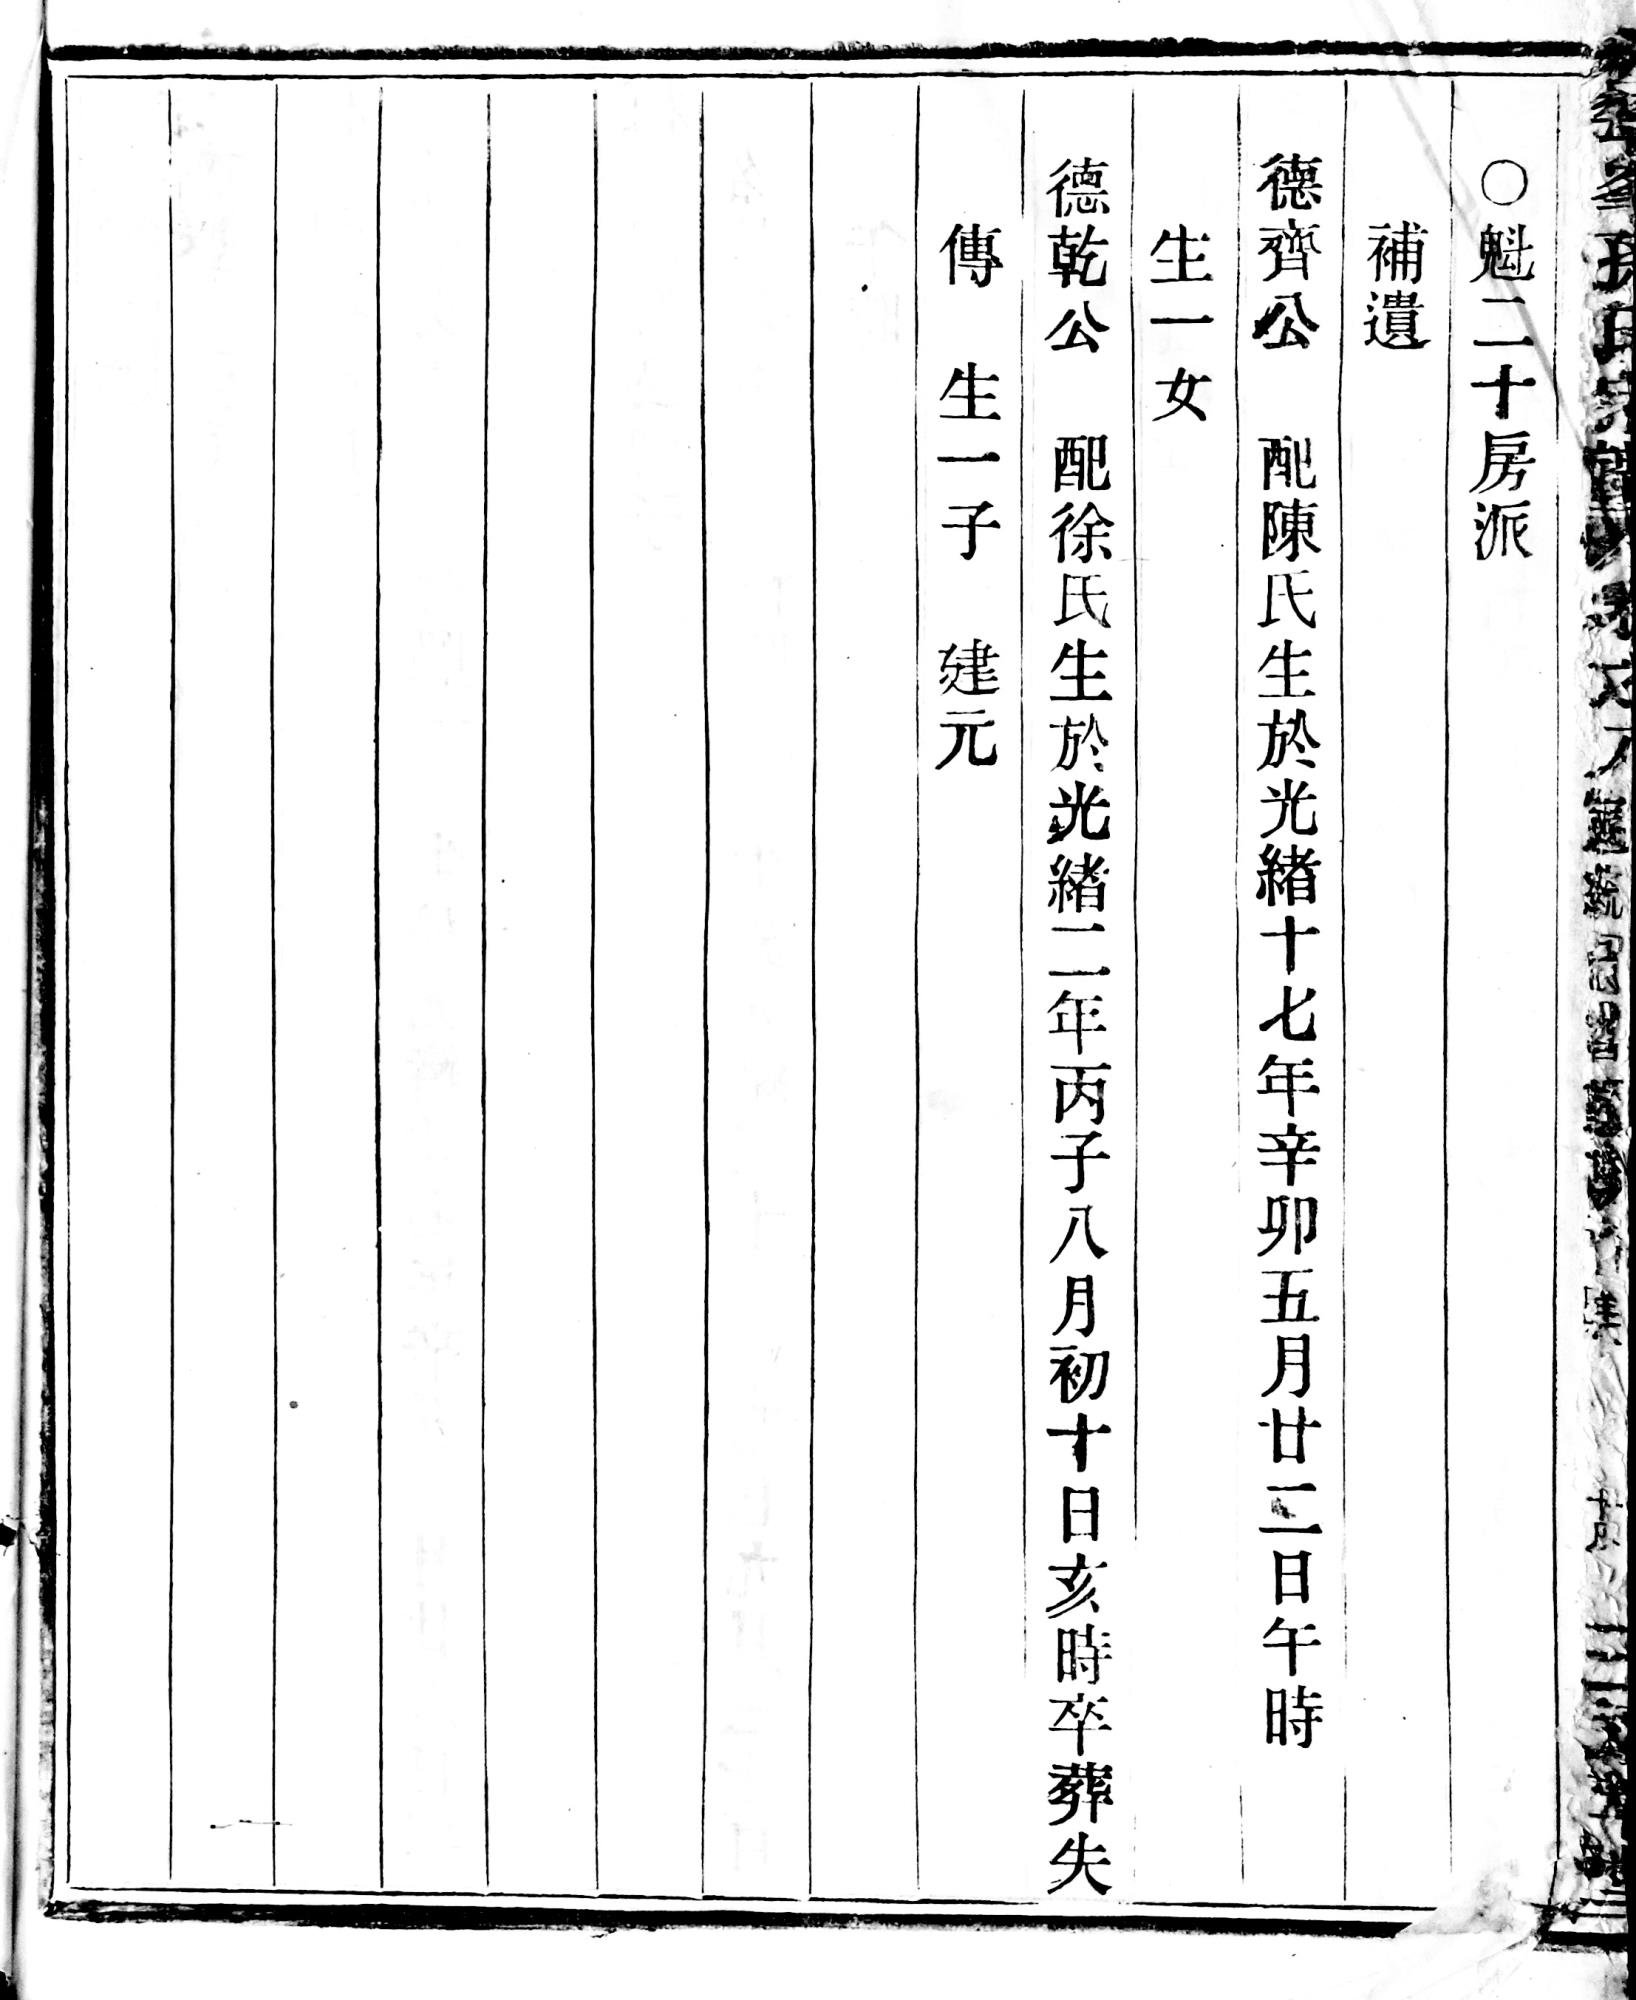 ○魁二十房派
補遺
德齊公　配陳氏生於光緒十七年辛卯五月廿二日午時
生一女
德乾公　配徐氏生於光緒二年丙子八月初十日亥時卒葬失
傳　生一子　建元